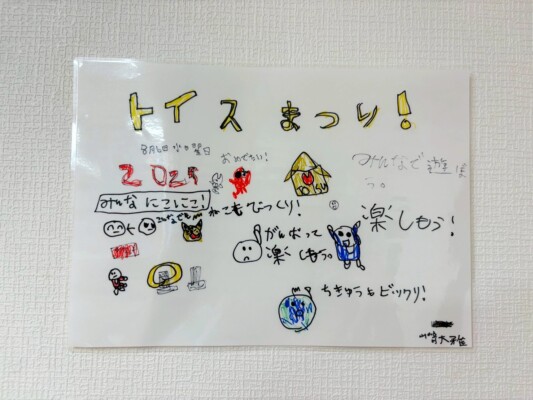 トイス まつり!
8月6日 水曜日
おめでたい!
みんなで遊ぼう。
2025
みんな にこにこ!
ねこもびっくり!
楽しもう!
がんばって
楽しもう。
ちきゅうもビックリ!